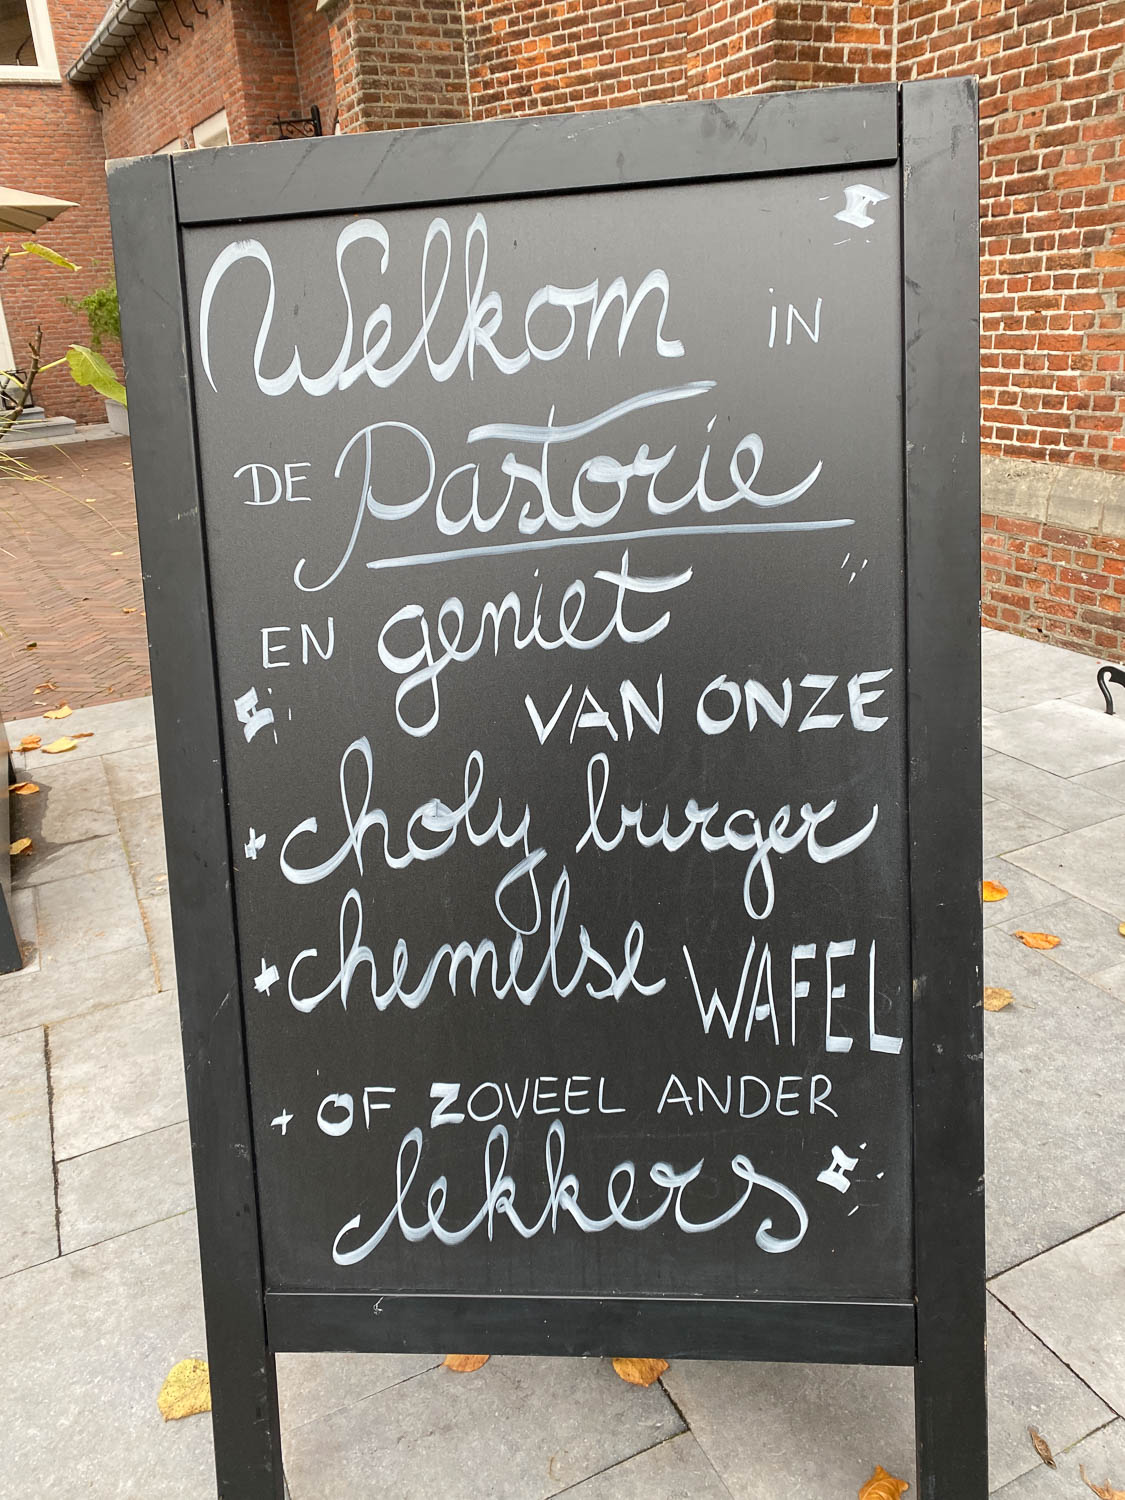 Welkom IN
DE Pastorie
EN geniet
VAN ONZE
+ choly burger
+ chemelse WAFEL
+ OF ZOVEEL ANDER
lekkers